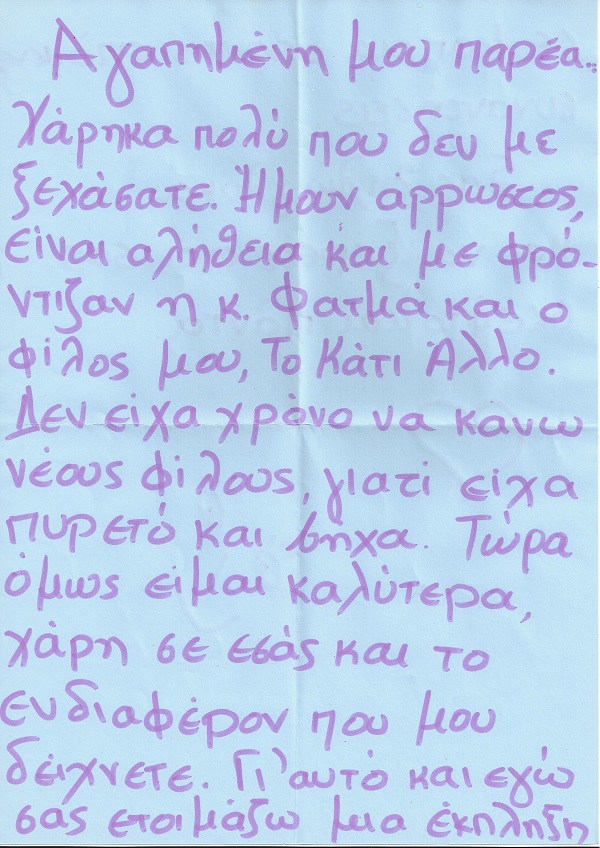 Αγαπημένη μου παρέα..
Χάρηκα πολύ που δεν με
ξεχάσατε. Ήμουν άρρωστος,
είναι αλήθεια και με φρό-
ντιζαν η κ. Φατμά και ο
φίλος μου, Το Κάτι Άλλο.
Δεν είχα χρόνο να κανω
νέους φίλους, γιατί είχα
πυρετό και βήχα. Τώρα
όμως είμαι καλύτερα,
χάρη σε εσάς και το
ενδιαφέρον που μου
δείχνετε. Γι'αυτό και εγώ
σας ετοιμάζω μια έκπληξη